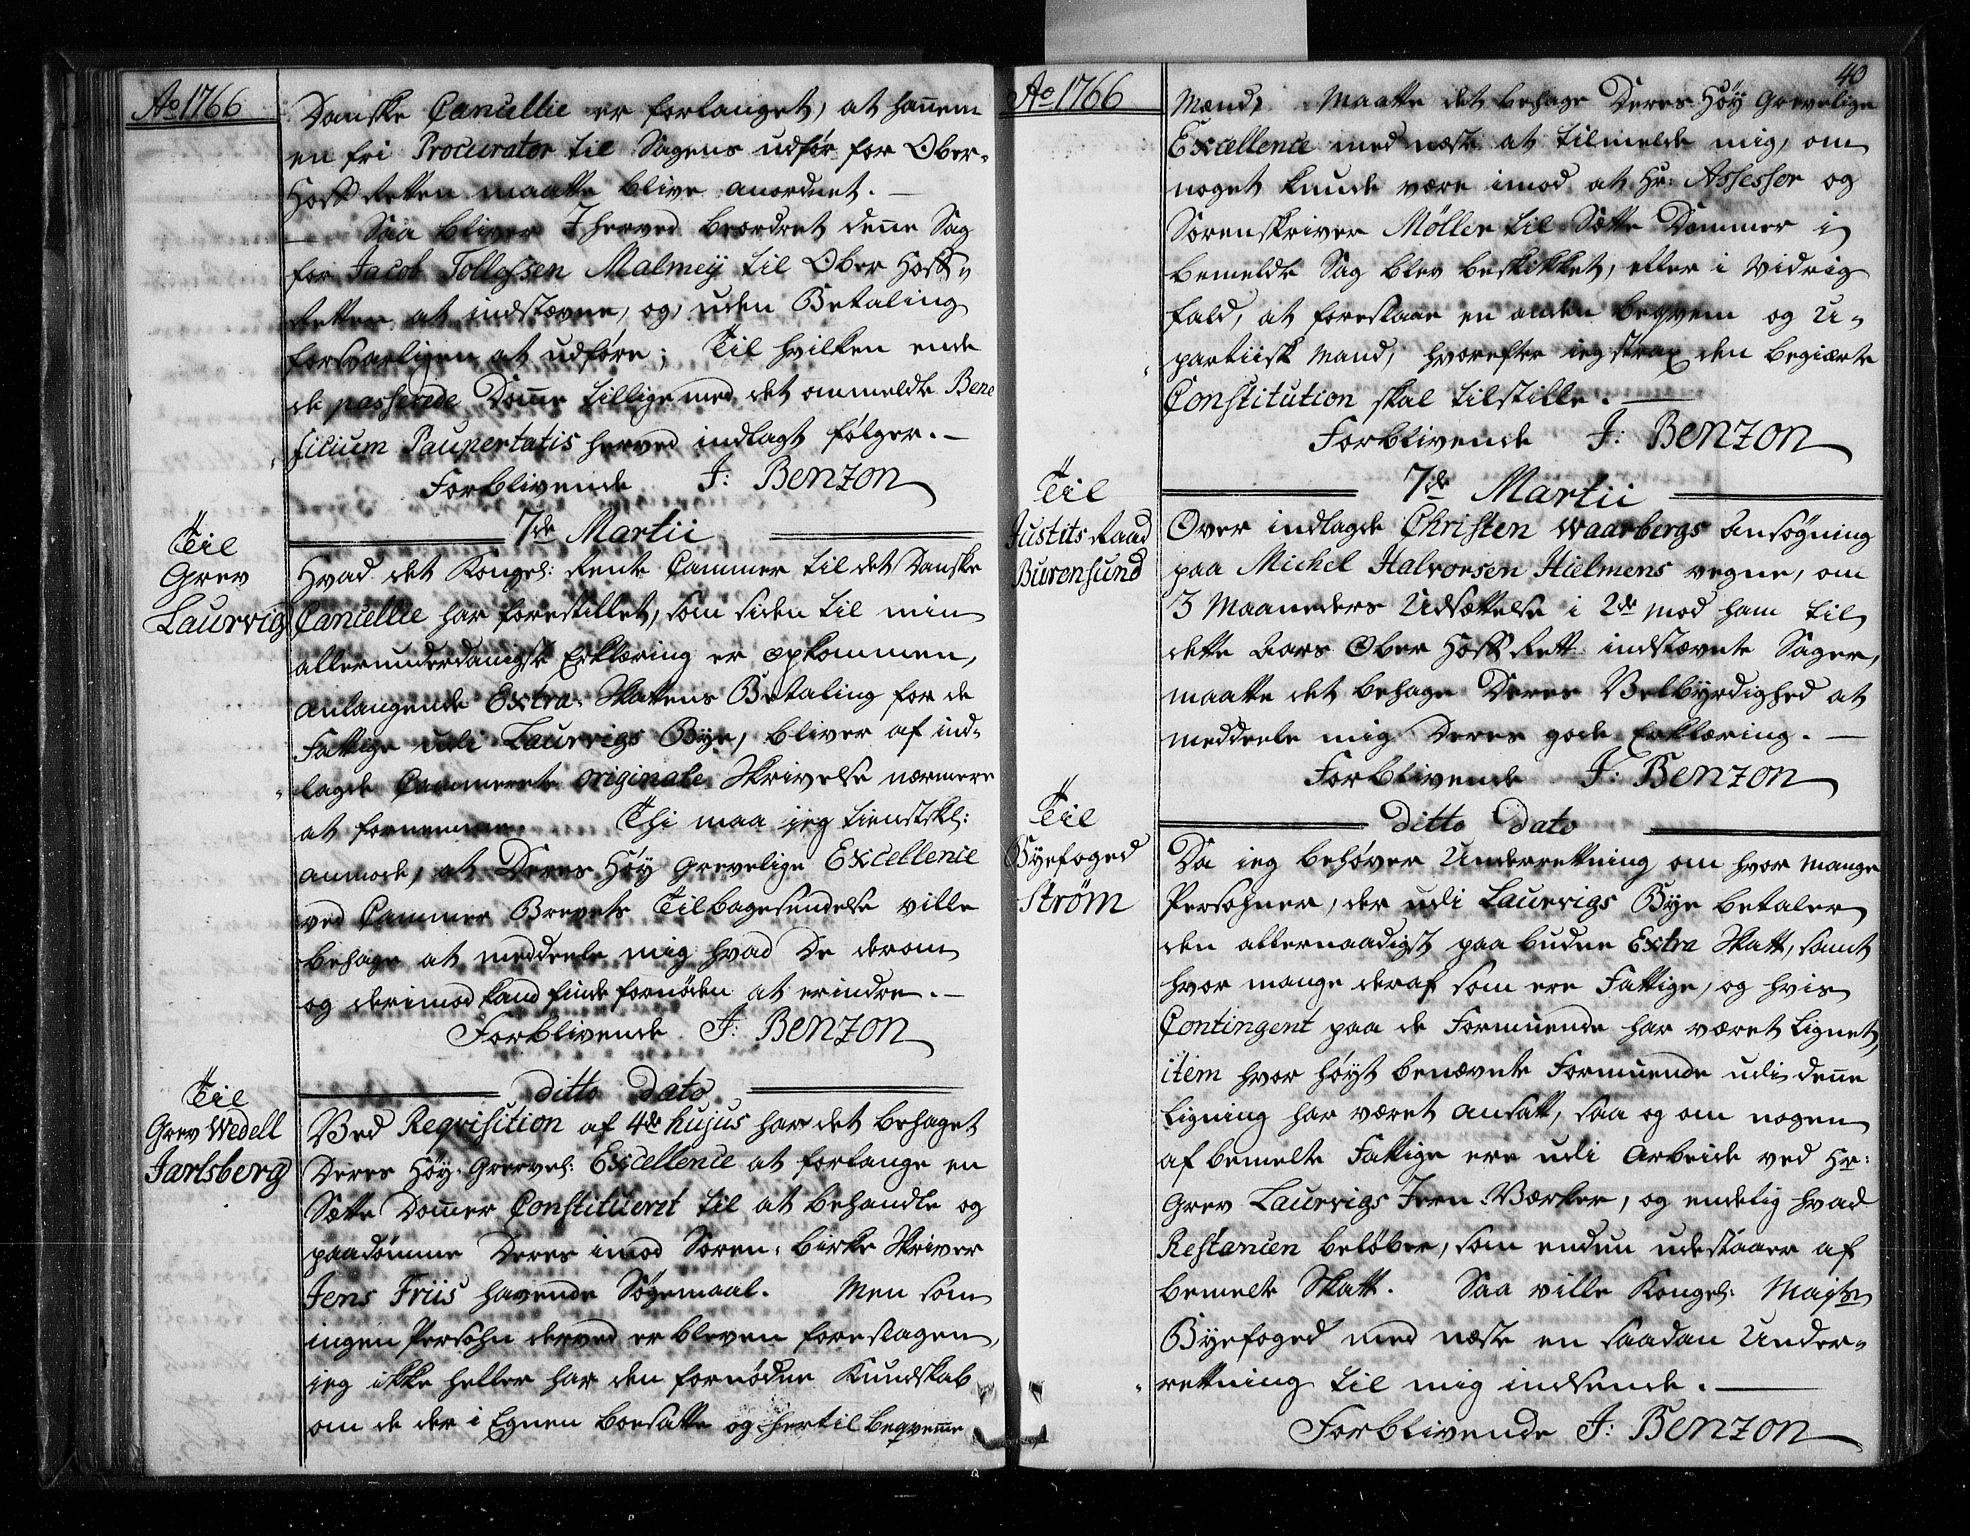 Ao 1766
Danske Cancellie er forlanget, at hannem
en fri Procurator til Sagens udför for Ober-
Hoff Retten maatte blive anordnet. —
Saa bliver I herved beordret denne Sag
for Jacob Tollefsen Malmey til Ober Hoff-
Retten at indstævne, og, uden Betaling
forsvarligen at udföre; Til hvilken ende
de passerede Domme tillige med det ommeldte Bene
ficium Paupertatis herved indlagt følger. —
Forblivende J: Benzon
7de Martii
Til
Grev
Laurvig
Hvad det Kongel: Rente Cammer til det Danske
Cancellie har forestillet, som siden til min
allerunderdanigste Erklæring er opkommen,
anlangende Extra-Skattens Betaling for de
Fattige udi Laurvigs Bye, bliver af ind-
lagde Cammerets originale Skrivelse nærmere
at fornemme. Thi maa jeg tienstskl:
anmode, at Deres Höy Grevelige Excellence
ved Cammer Brevets Tilbagesendelse ville
behage at meddeele mig hvad De derom
og derimod kand finde fornöden at erindre. —
Forblivende J: Benzon
ditto dato
Til
Grev Wedell
Jarlsberg
Ved Reqvisition af 4de hujus har det behaget
Deres Höy-Grevel: Excellence at forlange en
Sætte Dommer Constitueret til at behandle og
paadömme Deres imod Soren-Birke Skriver
Jens Friis havende Sögemaal. Men som
ingen Persohn derved er bleven foreslagen,
jeg ikke heller har den fornödne Kundskab
om de der i Egnen boesatte og hertil beqvemme
Ao 1766
40
Mænd, Maatte det behage Deres Höy Grevelige
Excellence med næste at tilmelde mig, om
noget kunde være imod at Hr: Assessor og
Sorenskriver Møller til Sætte Dommer i
bemeldte Sag blev beskikket, eller i vidrig
fald, at foreslaae en anden beqvem og U-
partiisk Mand, hvorefter jeg strax den begiærte
Constitution skal tilstille. —
Forblivende J: Benzon
7de Martii
Til
Justits Raad
Burensund
Over indlagde Christen Waarbergs Ansögning
paa Michel Halvorsen Hielmens vegne, om
3 Maaneders Udsættelse i 2de mod ham til
dette Aars Ober Hoff Rett indstævnte Sager,
maatte det behage Deres Velbyrdighed at
meddeele mig Deres gode Erklæring. —
Forblivende J: Benzon
ditto dato
Til
Byefoged
Strøm
Da jeg behöver Underretning om hvor mange
Persohner, der udi Laurvigs Bye betaler
den allernaadigst paabudne Extra Skatt, samt
hvor mange deraf som ere Fattige, og hvis
Contingent paa de Formuende har været lignet,
item hvor höyst benævnte Formuende udi denne
Ligning har været ansatt, saa og om nogen
af bemelte Fattige ere udi Arbeide ved Hr:
Grev Laurvigs Jern-Værker, og endelig hvad
Restancen belöber, som endnu udestaaer af
bemelte Skatt. Saa ville Kongel: Maјts
Byefoged med næste en saadan Under-
retning til mig indsende. —
Forblivende J: Benzon